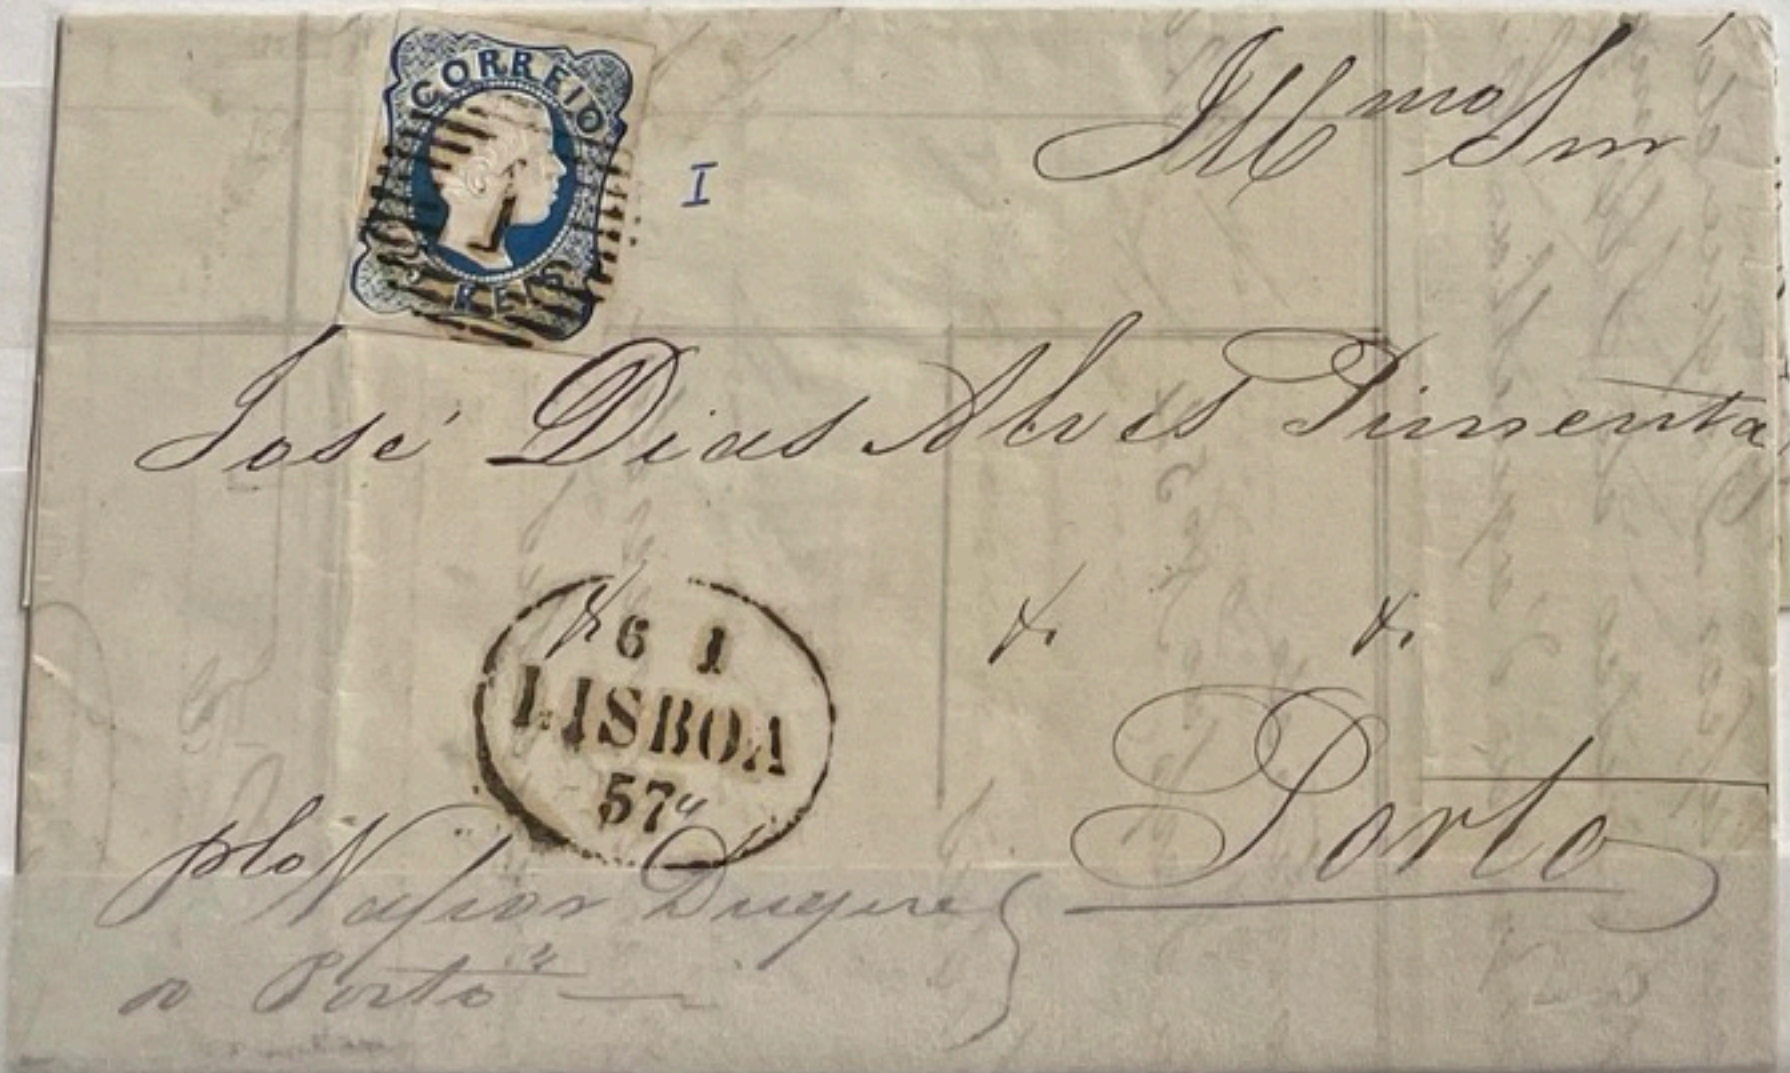 CORREIO
1
REIS
I
Illmo Snr
José Dias Alves Pimenta
&. &. &.
6 1
LISBOA
57
Porto
plo Vapor Duque
do Porto